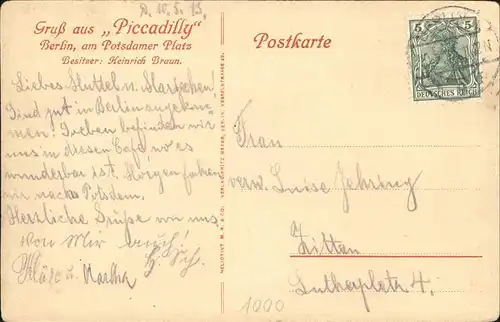 D. 10.5.13.
Gruß aus „Piccadilly"
Berlin, am Potsdamer Platz
Besitzer: Heinrich Braun.
Postkarte
5 5
DEUTSCHES REICH
Liebes Muttel u.
Sind gut in Berlin angekom-
men! Soeben befinden wir
uns in diesem Café wo es
wunderbar ist. Morgen fahren
wir nach Potsdam.
Herzliche Grüße von uns
von Mir auch!
Sch.
u. Martha
Frau
verw. Luise Jehring
Zittau
Lutherplatz 4.
1000